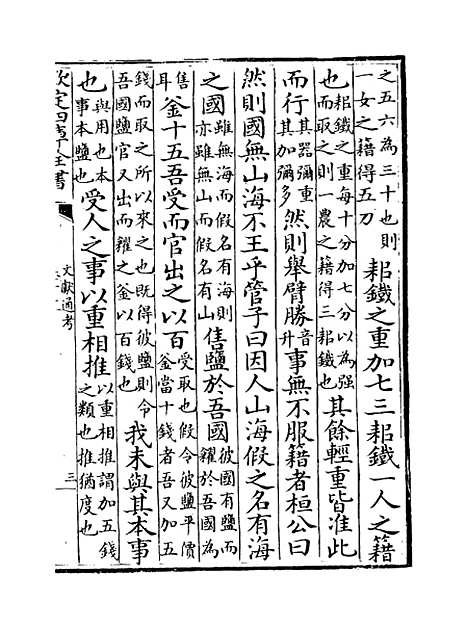 之五六為三十也則
一女之籍得五刀
耜鐵之重加七三耜鐵一人之籍
也
耜鐵之重每十分加七分以為强
而取之則一農之籍得三耜鐵也
其餘輕重皆准此
而行
其器彌重
其加彌多
然則舉臂勝
音
升
事無不服籍者桓公曰
然則國無山海不王乎管子曰因人山海假之名有海
之國
雖無海而假名有海則
亦雖無山而假名有山
售鹽於吾國
彼國有鹽而
糴於吾國為
售
耳
釜十五吾受而官出之以百
受取也假令彼鹽平價
釜當十錢者吾又加五
錢而取之所以來之也既得彼鹽則令
吾國鹽官又出而糶之釜以百錢也
我未與其本事
也
與用也本
事本鹽也
受人之事以重相推
以重相推謂加五錢
之類也推猶度也
欽定四庫全書
文獻通考
三